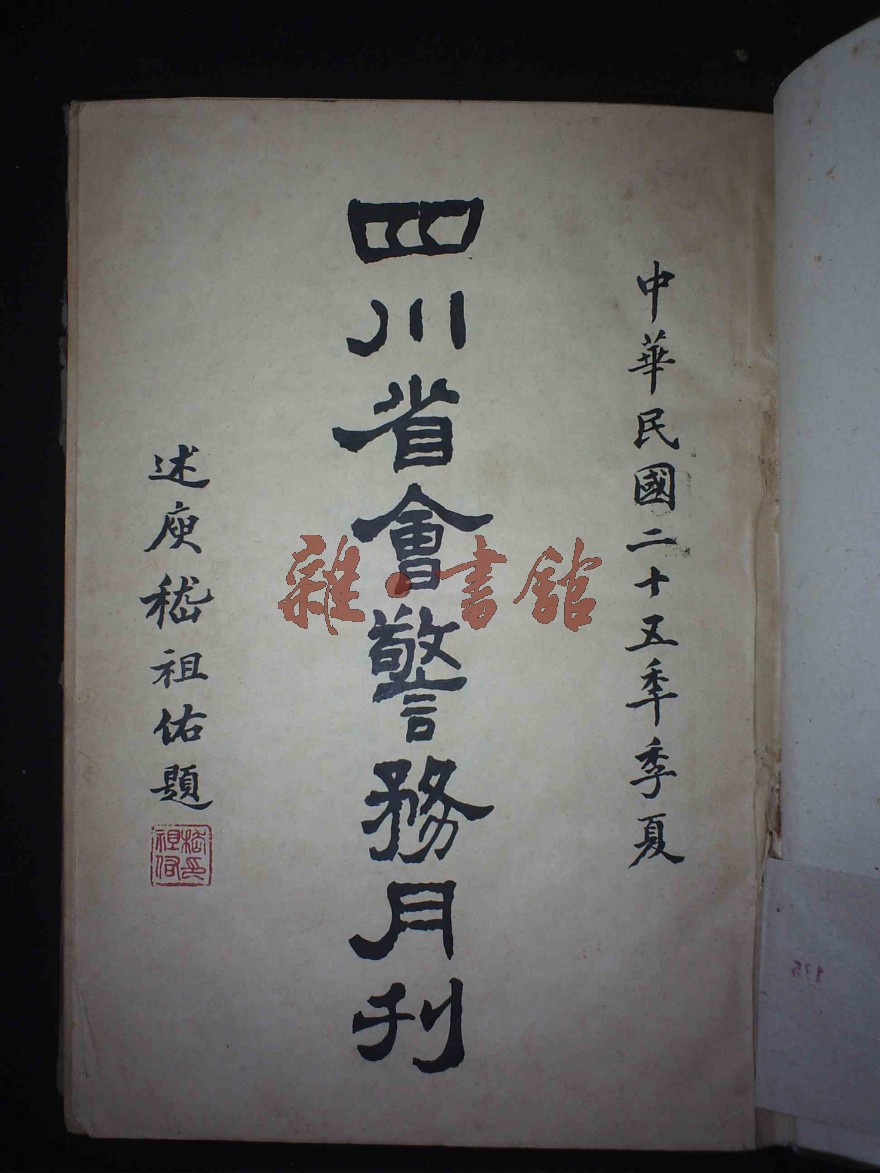 中華民國二十五年季夏
四川省會警務月刊
述庾嵇祖佑題
雜·書館